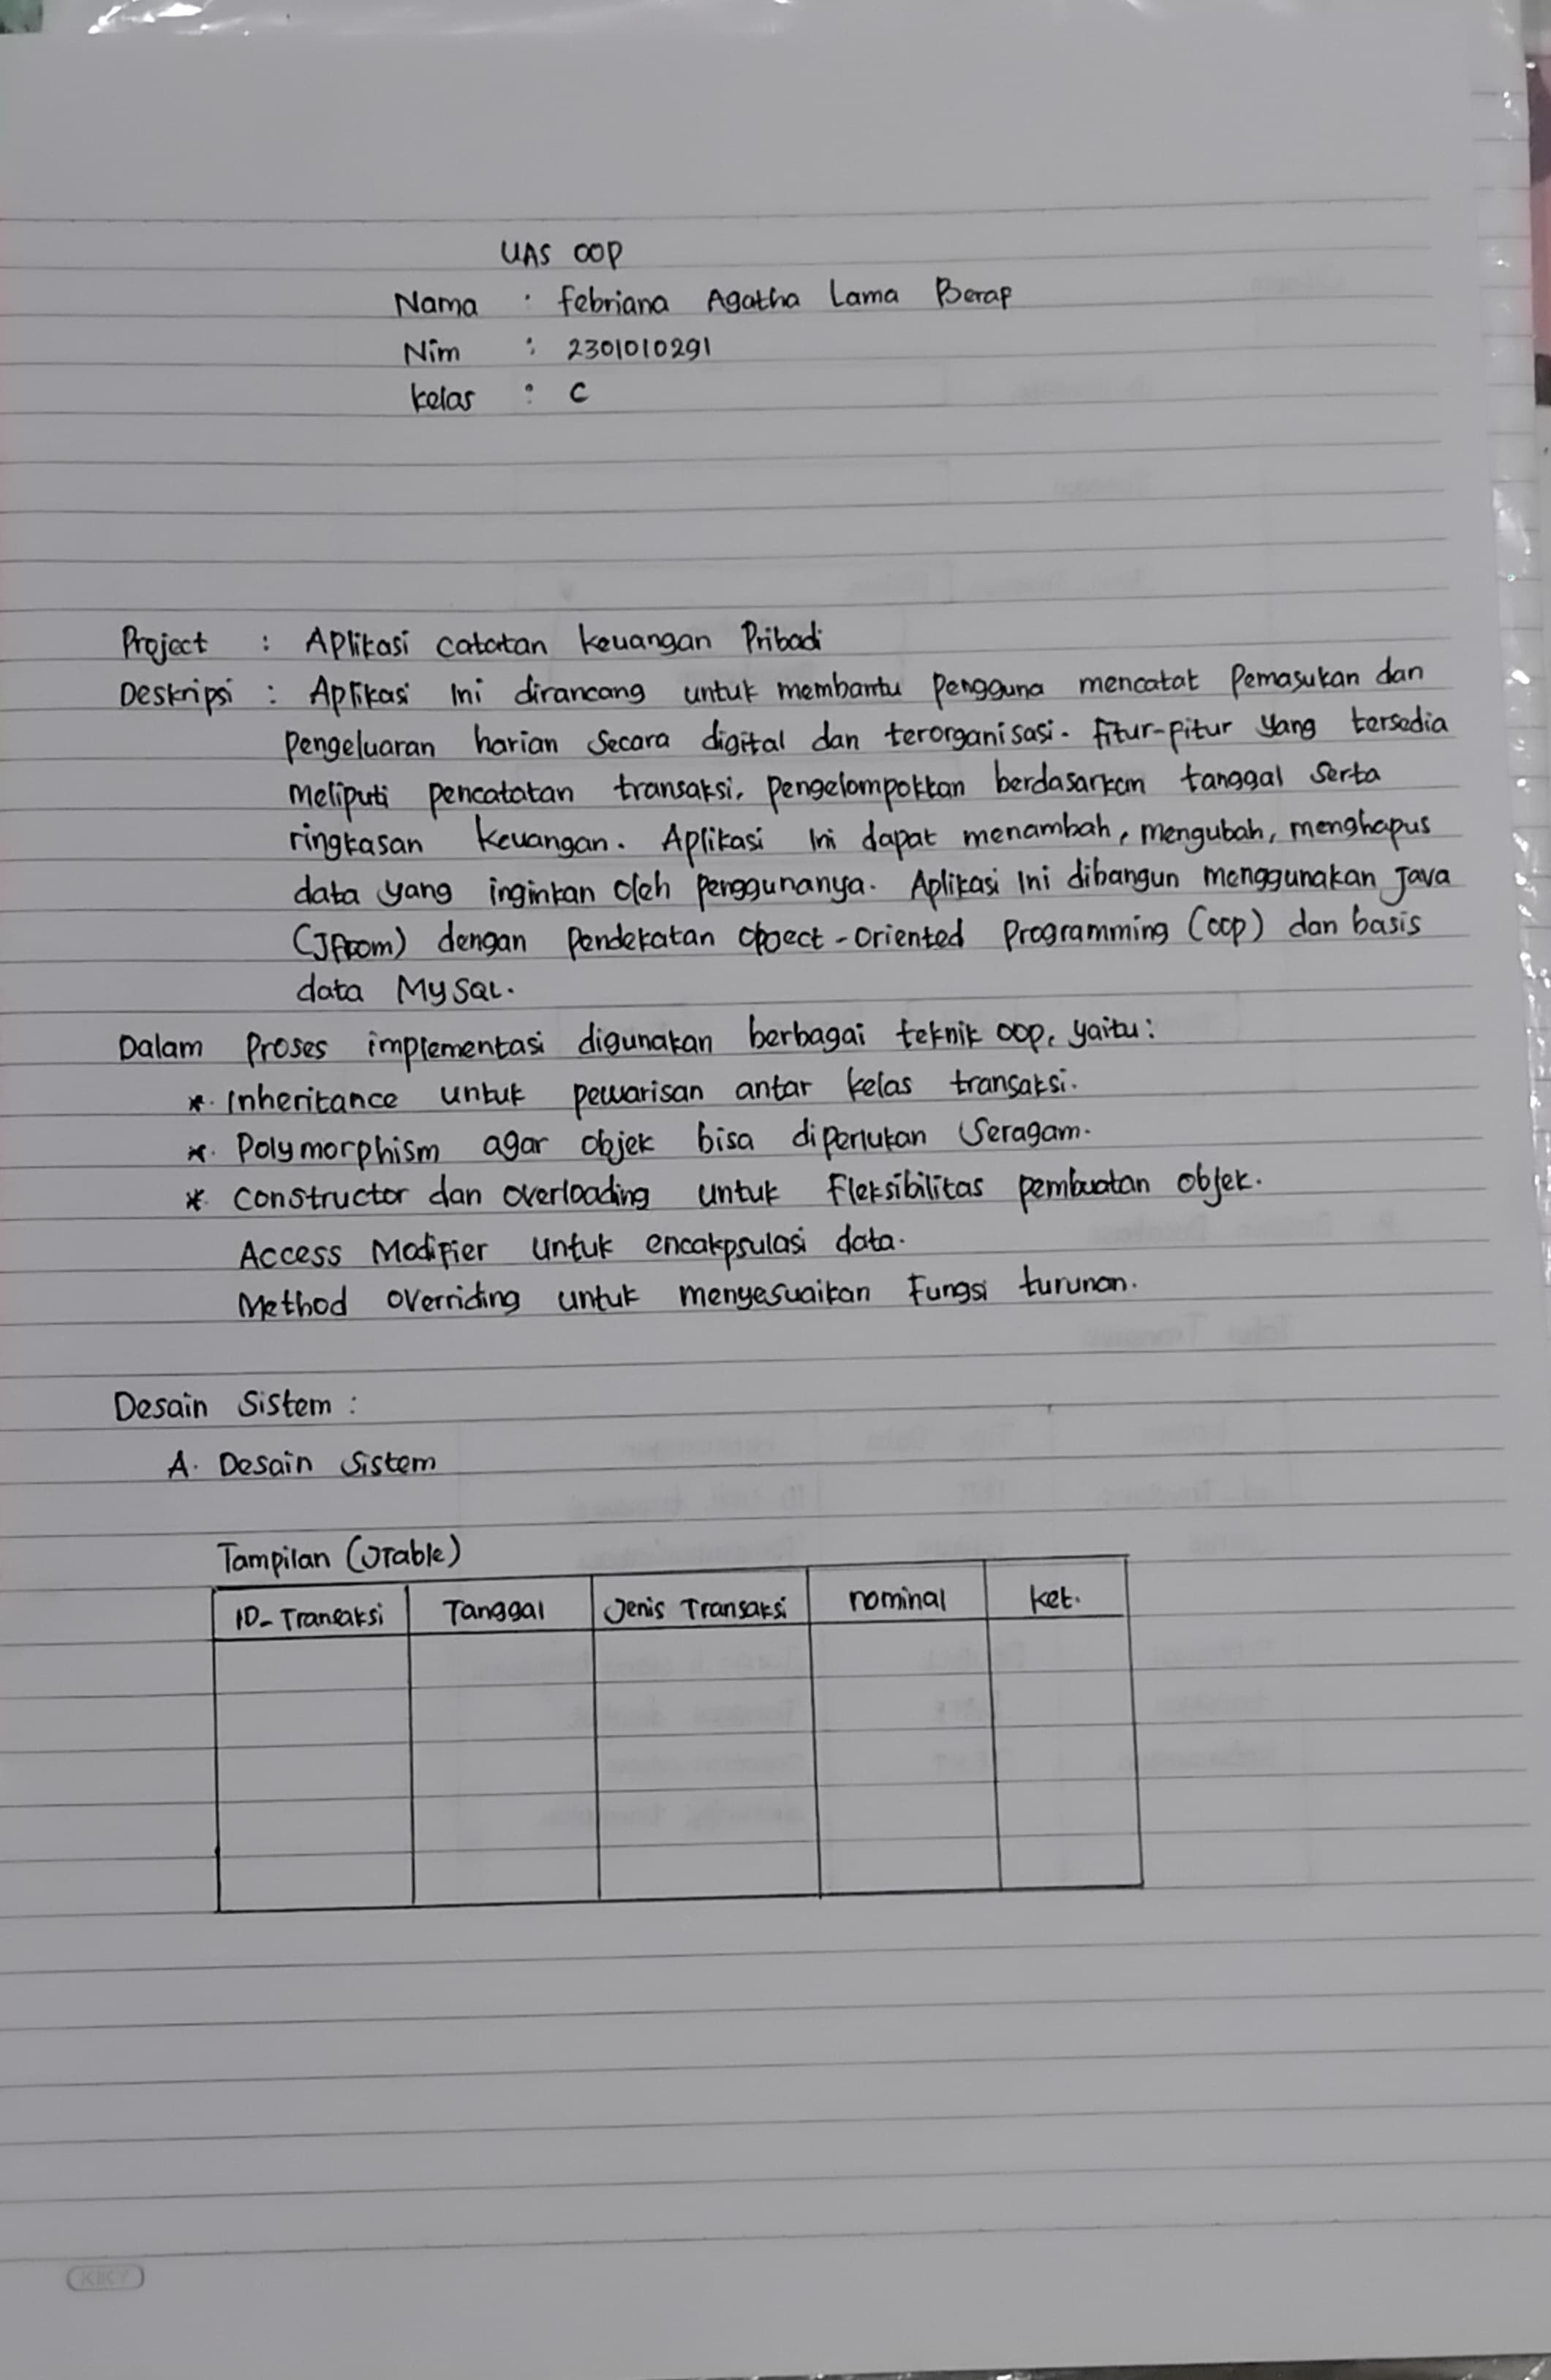 UAS OOP
Nama : Febriana Agatha Lama Berap
Nim : 2301010291
Kelas : C
Project : Aplikasi catatan keuangan Pribadi
Deskripsi : Aplikasi Ini dirancang untuk membantu pengguna mencatat Pemasukan dan
pengeluaran harian secara digital dan terorganisasi. fitur-pitur yang tersedia
meliputi pencatatan transaksi, pengelompokkan berdasarkan tanggal serta
ringkasan keuangan. Aplikasi Ini dapat menambah, mengubah, menghapus
data yang inginkan oleh penggunanya. Aplikasi Ini dibangun menggunakan Java
dengan pendekatan -Oriented Programming (OOP) dan basis
data MySQL.
Dalam Proses implementasi digunakan berbagai teknik OOP, yaitu:
*. Inheritance untuk pewarisan antar kelas transaksi.
*. Polymorphism agar objek bisa diperlukan seragam.
*. Constructor dan overloading untuk Fleksibilitas pembuatan objek.
Access Modifier untuk encakpsulasi data.
Method overriding untuk menyesuaikan Fungsi turunan.
Desain Sistem :
A. Desain Sistem
Tampilan (JTable)
ID_Transaksi Tanggal Jenis Transaksi nominal ket.
KIKY